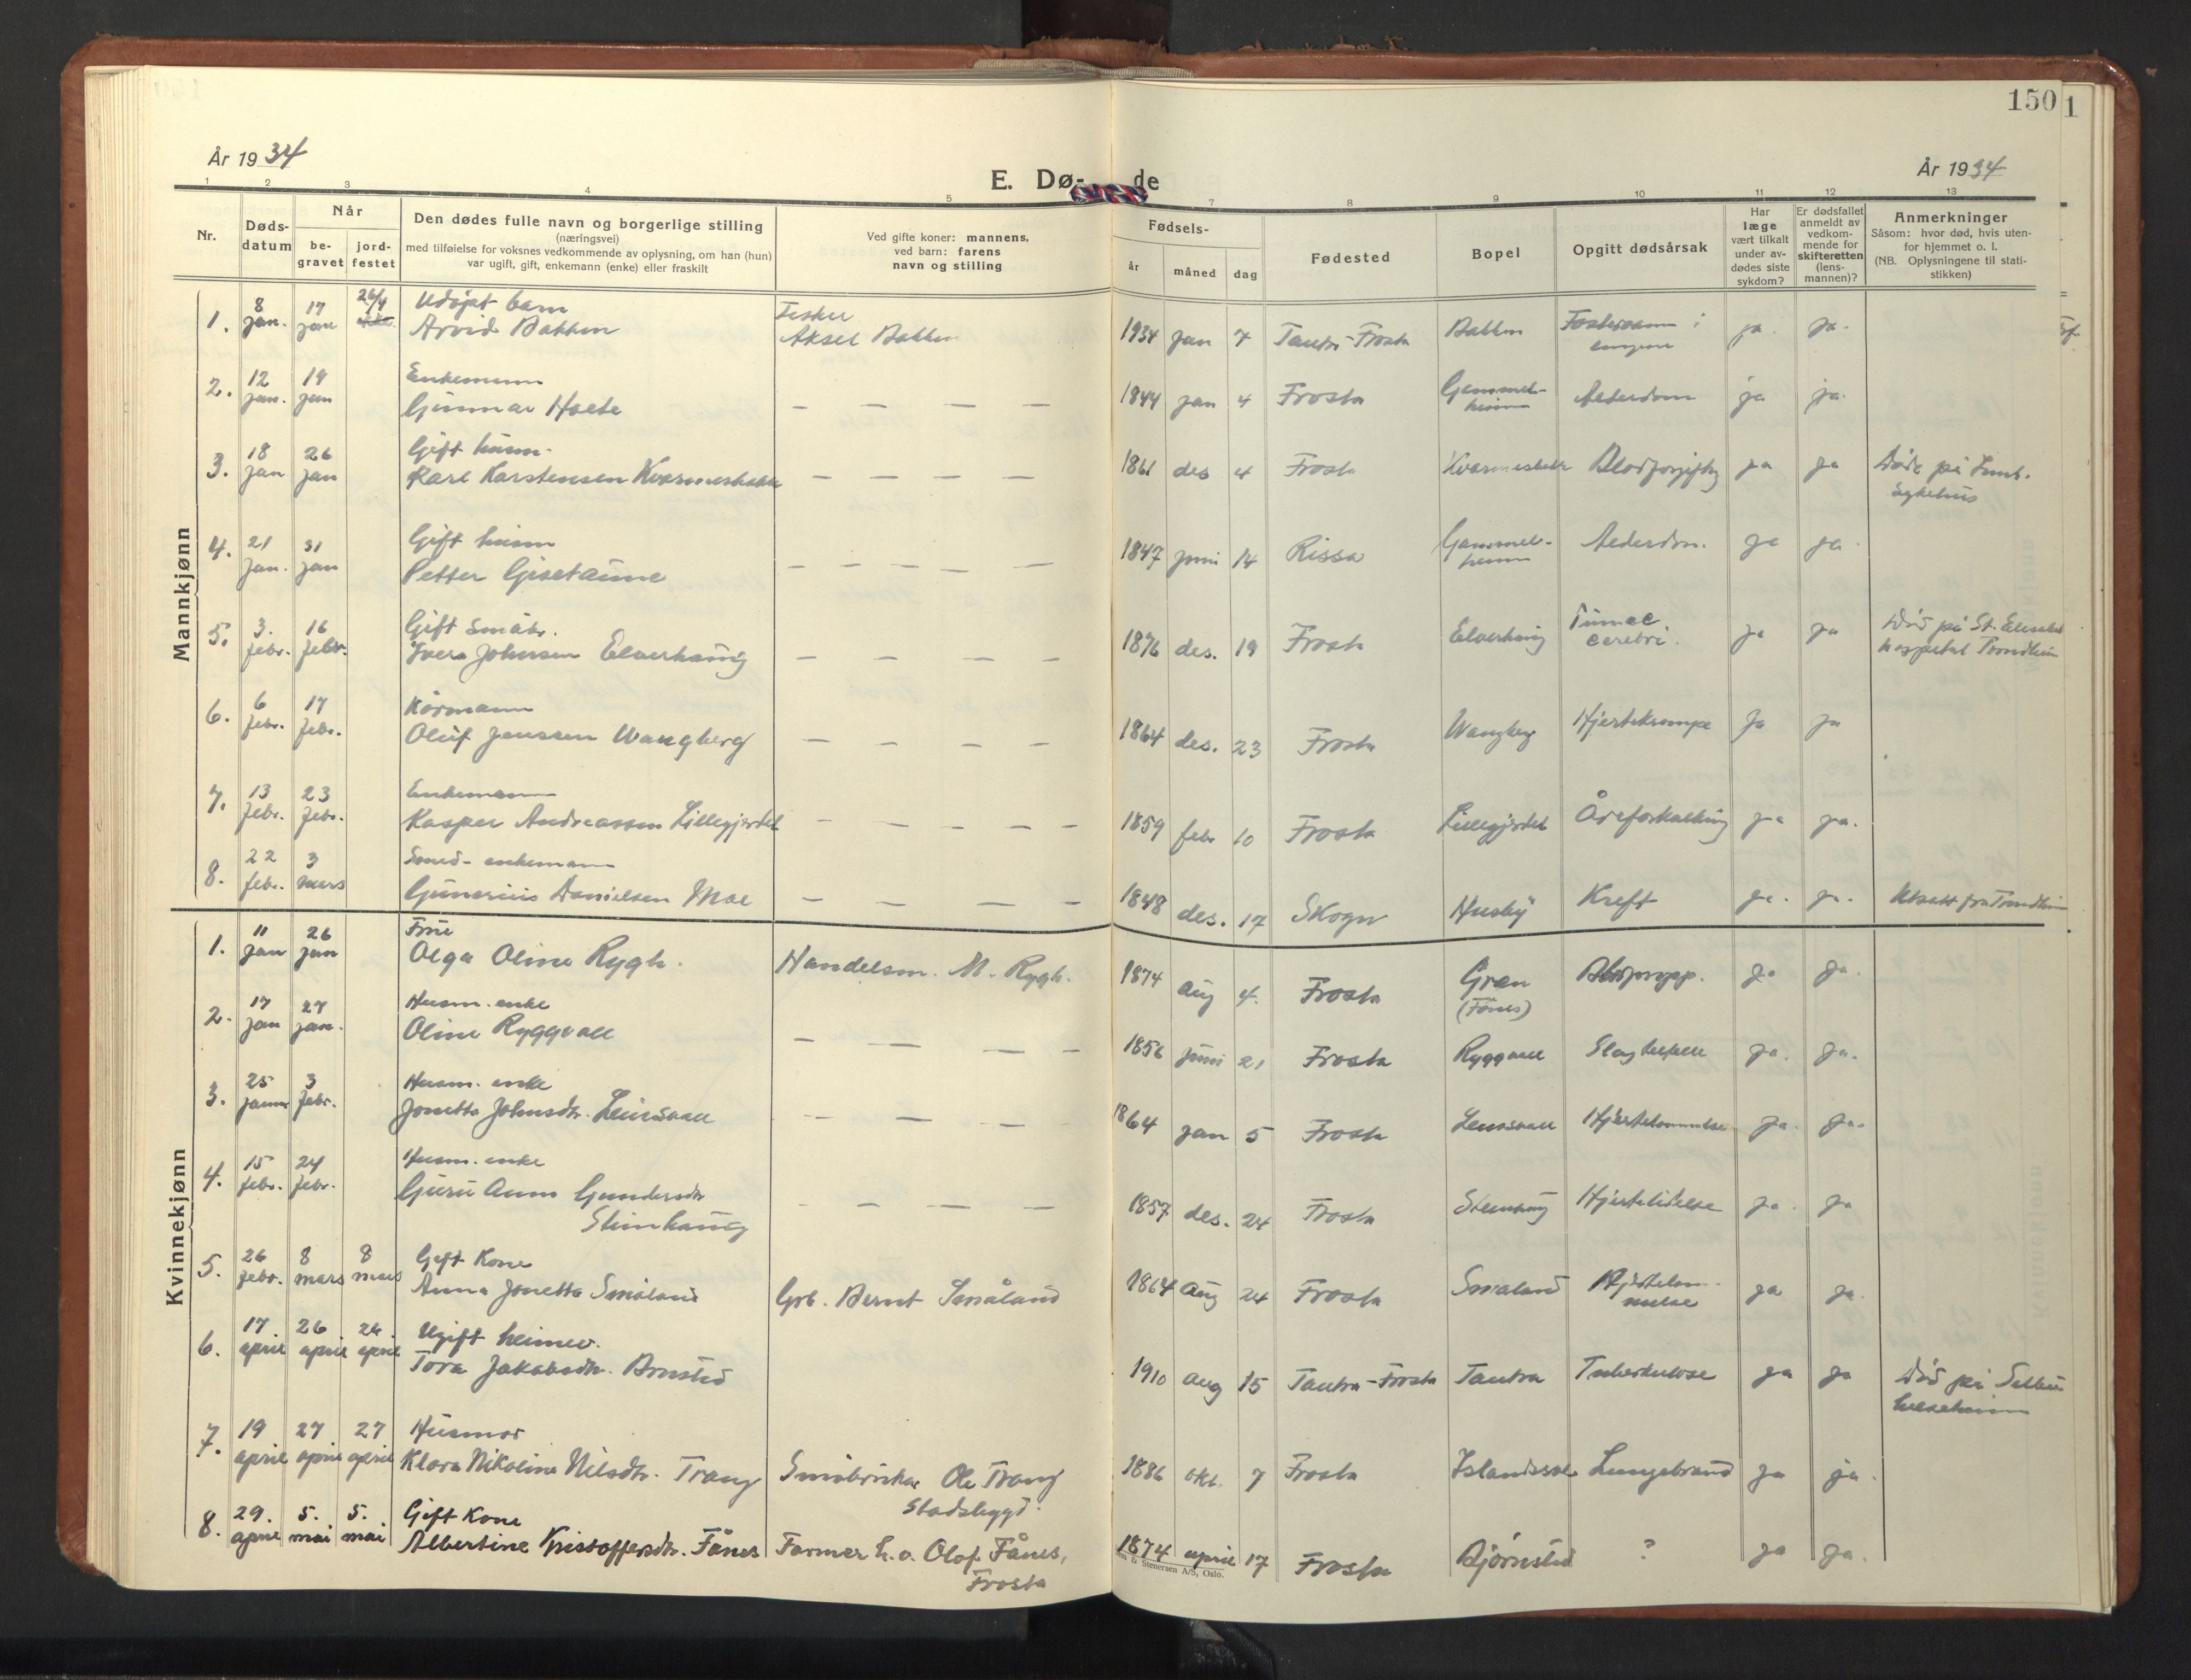 150
1
År 1934
E. Dø- de
År 1934
1 2 3 4 5 7 8 9 10 11 12 13
Nr.
Døds-
datum
Når
be-
gravet
jord-
festet
Den dødes fulle navn og borgerlige stilling
(næringsvei)
med tilføielse for voksnes vedkommende av oplysning, om han (hun)
var ugift, gift, enkemann (enke) eller fraskilt
Ved gifte koner: mannens,
ved barn: farens
navn og stilling
Fødsels-
år måned dag
Fødested
Bopel
Opgitt dødsårsak
Har
læge
vært tilkalt
under av-
dødes siste
sykdom?
Er dødsfallet
anmeldt av
vedkom-
mende for
skifteretten
(lens-
mannen)?
Anmerkninger
Såsom: hvor død, hvis uten-
for hjemmet o. l.
(NB. Oplysningene til stati-
stikken)
Mannkjønn
1. 8 jan. 17 jan 26/4
Udøpt barn
Arvid Bakken
Fisker
Aksel Bakken
1934 jan 7 Tautra-Frosta Bakken Fostervann i ja. ja.
2. 12 jan. 19 jan
Enkemann
Gunnar Hoete — — — —
1844 jan 4 Frosta Gammel-
heim
Alderdom ja ja.
3. 18 jan 26 jan
Gift husm.
Karl Karstensen Kvarmesbakk — — — —
1861 des 4 Frosta Kvarmesbakk Blodforgiftng ja ja Døde på Innh.
sykehus
4. 21 jan. 31 jan
Gift husm
Petter Gisetaune — — — — —
1847 juni 14 Rissa Gammel-
heim
Alderdom. ja ja.
5. 3. febr. 16 febr.
Gift småbr.
Iver Johnsen Elverhaug — — — —
1876 des. 19 Frosta Elverhaug
cerebri. ja ja Død på St. Elisabet
hospital Trondheim
6. 6 febr. 17 febr.
Kårmann
Oluf Jenssen Wangberg — — — —
1864 des. 23 Frosta Wangberg Hjertekrampe ja ja
7. 13 febr. 23 febr.
Enkemann
Kasper Andreassen Lillegjerdet — — — — —
1859 febr 10 Frosta Lillegjerdet Åreforkalkning ja ja.
8. 22 febr. 3 mars
Smed- enkemann
Gunerius Danielsen Moe — — — —
1848 des. 17 Skogn Husby Kreft ja. ja. Utsatt fra Trondheim
Kvinnekjønn
1. 11 jan 26 jan
Frue
Olga Oline Rygh.
Handelsm. M. Rygh.
1874 aug 4. Frosta Gran
(Fånes)
Blodpropp. ja ja.
2. 17 jan 27 jan.
Husm. enke
Oline Ryggvall — — — —
1856 juni 21 Frosta Ryggvall Slagtilfelle ja. ja.
3. 25 januar 3 febr.
Husm. enke
Jonetta Johnsdtr. Leinsvall — — — —
1864 jan 5 Frosta Leinsvall Hjertelammelse ja. ja.
4. 15 febr. 24 febr.
Husm. enke
Guru Anna Gundersdtr
Steinhaug — — — —
1857 des. 24 Frosta Steinhaug Hjertelidelse ja. ja
5. 26 febr. 8 mars 8 mars
Gift Kone
Anna Jonetta Småland
Grb. Bernt Småland
1864 aug 24 Frosta Småland Hjertelam-
melse
ja ja.
6. 17. april 26. april 26. april
Ugift heimev.
Tora Jakobsdtr. Brustad
1910 aug 15 Tautra-Frosta Tautra Tuberkulose ja ja Død på Selbu
helseheim
7. 19 april 27 april 27 april
Husmor
Klara Nikoline Nilsdtr. Trang
Småbruker Ole Trang
Stadsbygd.
1886 okt. 7 Frosta Islandsvol Lungebrand ja ja.
8. 29. april 5. mai 5. mai
Gift Kone
Albertine Kristoffersdtr. Fånes
Farmer h.o. Olof Fånes,
Frosta
1874 april 17 Frosta Bjørnstad ? ja ja.
Stenersen A/S, Oslo.